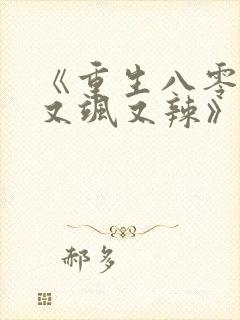 《重生八零
又飒又辣》
郝多